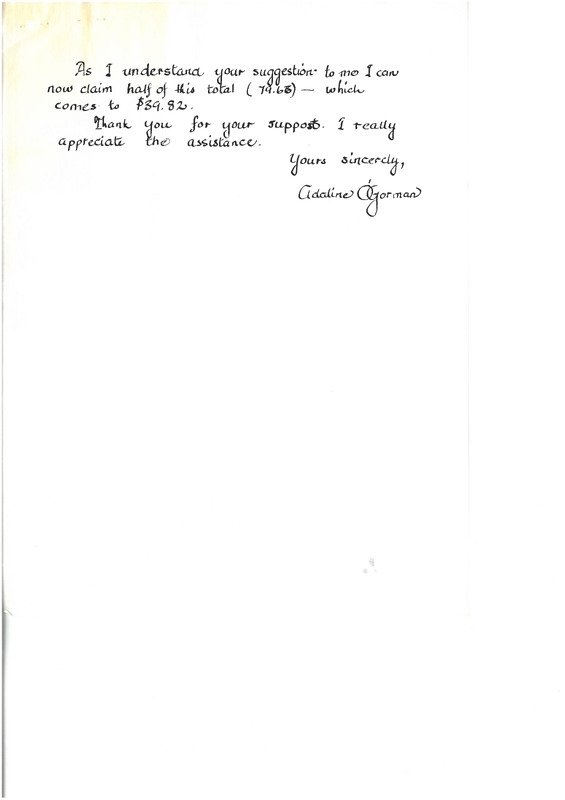 As I understand your suggestion to me I can
now claim half of this total (79.63) — which
comes to $39.82.
Thank you for your support. I really
appreciate the assistance.
Yours sincerely,
Adaline O'Gorman